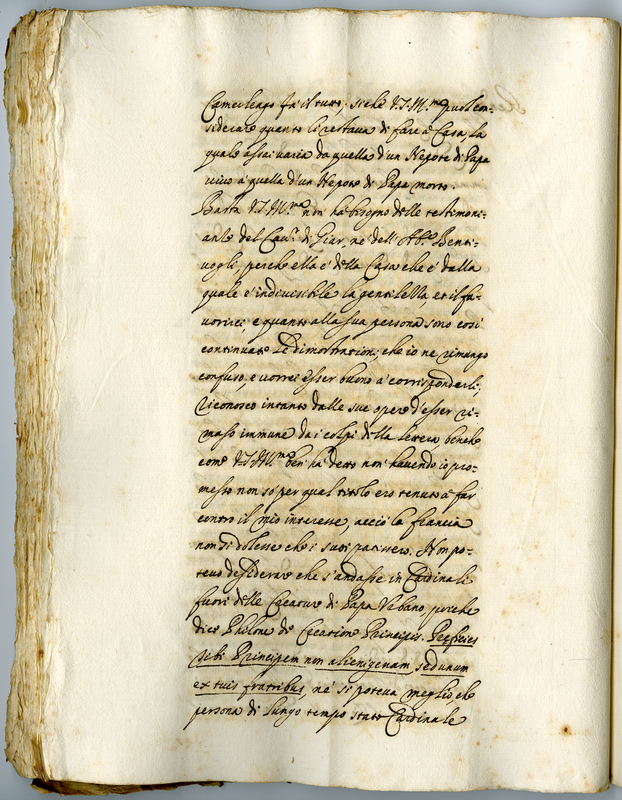 Camerlengo fà il tutto; siche V.S. Ill.ma può con-
siderare quanto li restava di fare à Casa, la
quale assai varia da quella d'un Nepote di Papa
vivo à quella d'un Nepote di Papa morto.
Basta V.S. Ill.ma non hà bisogno delle testimoni-
anze del Cav.r di Giar, ne dell'Abb.e Benti-
vogli, perche ella è della Casa che è dalla
quale è indivisibile la gentilezza, et il fa-
vorirci, e quanto alla sua persona sono così
continuate le dimostrationi, che io ne rimango
confuso, e vorrei esser buono à corrisponderli;
riconosco intanto dalle sue opere d'esser ri-
maso immune da i colpi della lettera benche
come V.S. Ill.ma ben hà detto non havendo io pro-
messo non sò per qual titolo ero tenuto à far
contro il mio interesse, acciò la francia
non si dolesse che i suoi patissero. Non po-
tevo desiderare che s'andasse in Cardinali
fuori delle Creature di Papa Urbano perche
dice Philone de Creatione Principis. Preficies
tibi Principem non alienigenam, sed unum
ex tuis fratribus, ne si poteva meglio che
persona di lungo tempo stato Cardinale